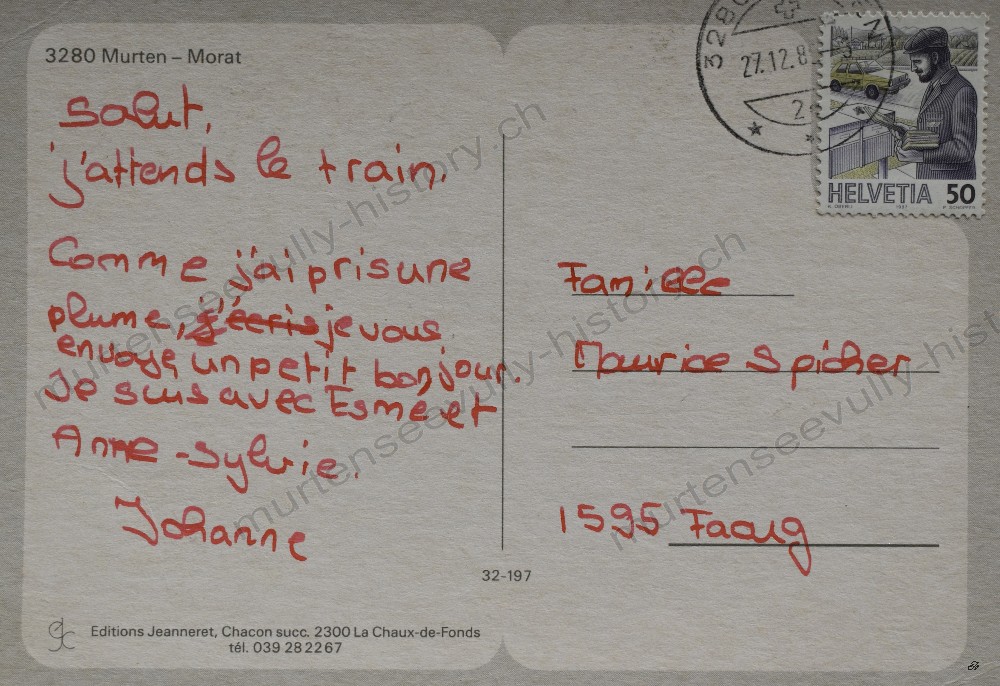 3280 Murten – Morat
Salut,
j'attends le train.
Comme j'ai pris une
plume, j'écris je vous
envoye un petit bonjour.
Je suis avec Esmé et
Anne-Sylvie.
Johanne
27.12.8
HELVETIA 50
Famille
Maurice Spicher
1595 Faoug
32-197
Editions Jeanneret, Chacon succ. 2300 La Chaux-de-Fonds
tél. 039 28 22 67
murtenseevully-history.ch
murtenseevully-history.ch
murtenseevully-history.ch
murtenseevully-history.ch